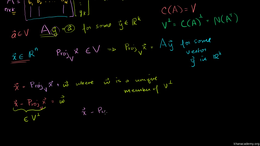 C(A) = V
a⃗ ∈ V Ay⃗ = a⃗ for some y⃗ ∈ ℝᵏ
V⊥ = C(A)⊥ = N(Aᵀ)
x⃗ ∈ ℝⁿ Proj_V x⃗ ∈ V ⇒ Proj_V x⃗ = Ay⃗ for some
vector
y⃗ in ℝᵏ
x⃗ = Proj_V x⃗ + w⃗ where w⃗ is a unique
member of V⊥
x⃗ - Proj_V x⃗ = w⃗
∈ V⊥
x⃗ - Pr
khanacademy.org